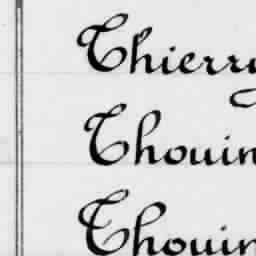 Thierry
Thouin
Thouin